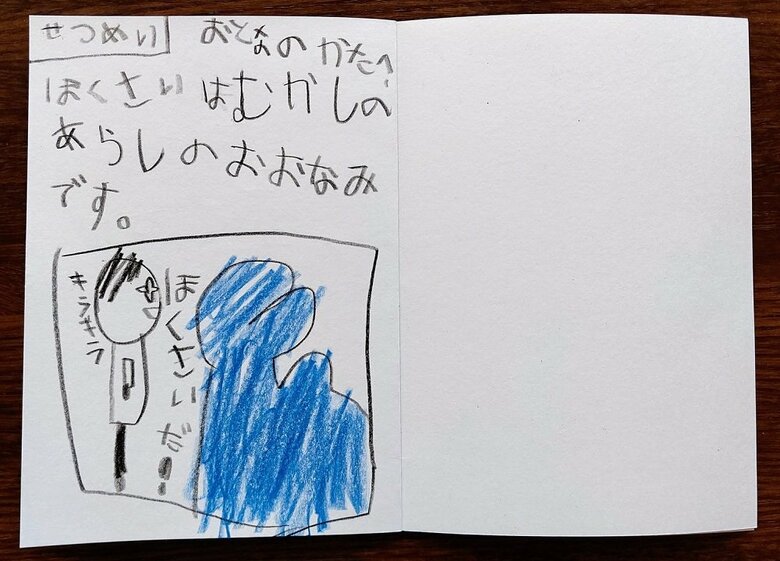 せつめい
おとなのかたへ
ほくさいはむかしの
あらしのおおなみ
です。
キラキラ
ほくさいだ!